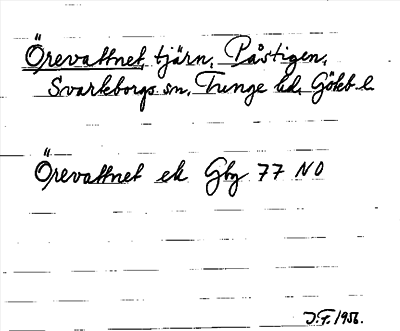 Örevattnet, tjärn, Påstigen,
Svarteborgs sn, Tunge hd, Götéb. l.
Örevattnet ek Gbg 77 NO
J.F. 1956.